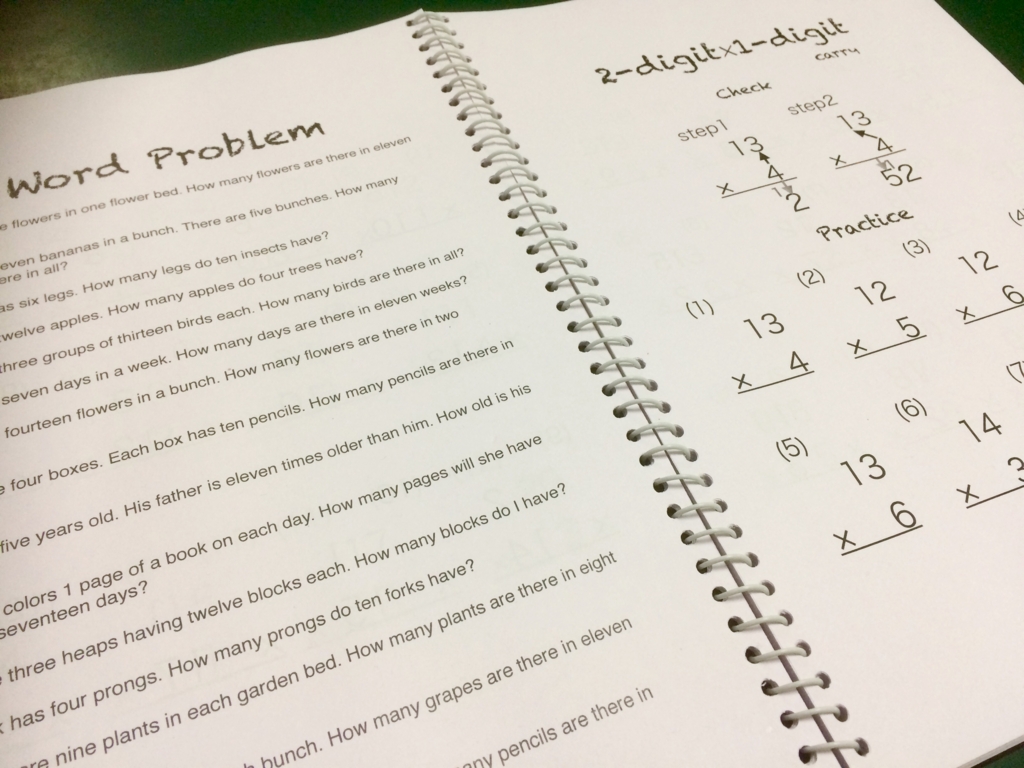 Word Problem
flowers in one flower bed. How many flowers are there in eleven
bananas in a bunch. There are five bunches. How many
in all?
six legs. How many legs do ten insects have?
twelve apples. How many apples do four trees have?
three groups of thirteen birds each. How many birds are there in all?
seven days in a week. How many days are there in eleven weeks?
fourteen flowers in a bunch. How many flowers are there in two
four boxes. Each box has ten pencils. How many pencils are there in
five years old. His father is eleven times older than him. How old is his
colors 1 page of a book on each day. How many pages will she have
seventeen days?
three heaps having twelve blocks each. How many blocks do I have?
has four prongs. How many prongs do ten forks have?
nine plants in each garden bed. How many plants are there in eight
bunch. How many grapes are there in eleven
many pencils are there in
2-digit×1-digit
carry
Check
step1
13
x 4
1
2
step2
13
x 4
52
Practice
(1)
13
x 4
(2)
12
x 5
(3)
12
x 6
(5)
13
x 6
(6)
14
x 3